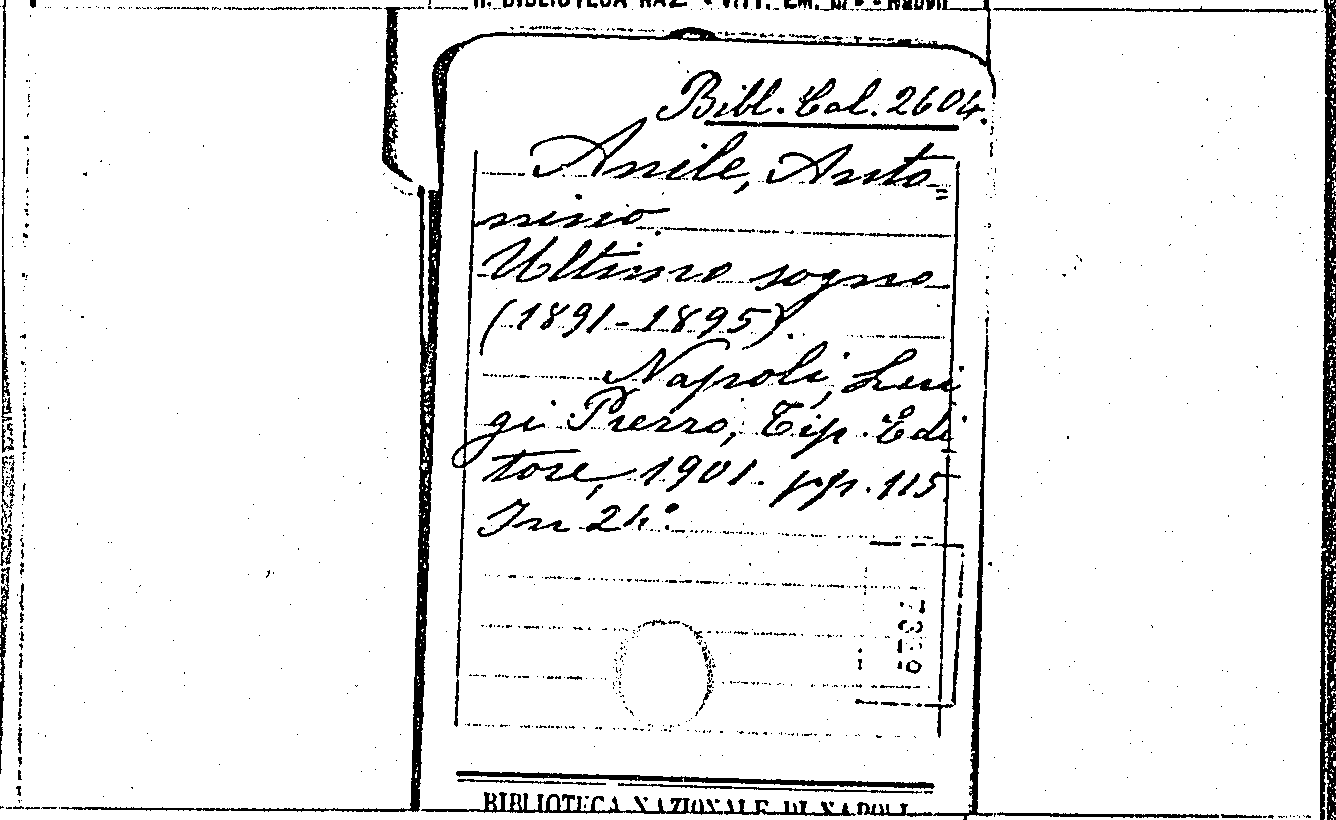 R. BIBLIOTECA NAZ. - VITT. EM. III - Napoli
Bibl. Cal. 2604.
Anile, Anto=
nino.
Ultimo sogno
(1891-1895).
Napoli, Lui
gi Pierro, Tip. Edi
tore, 1901. pp. 115
In 24°.
BIBLIOTECA NAZIONALE DI NAPOLI